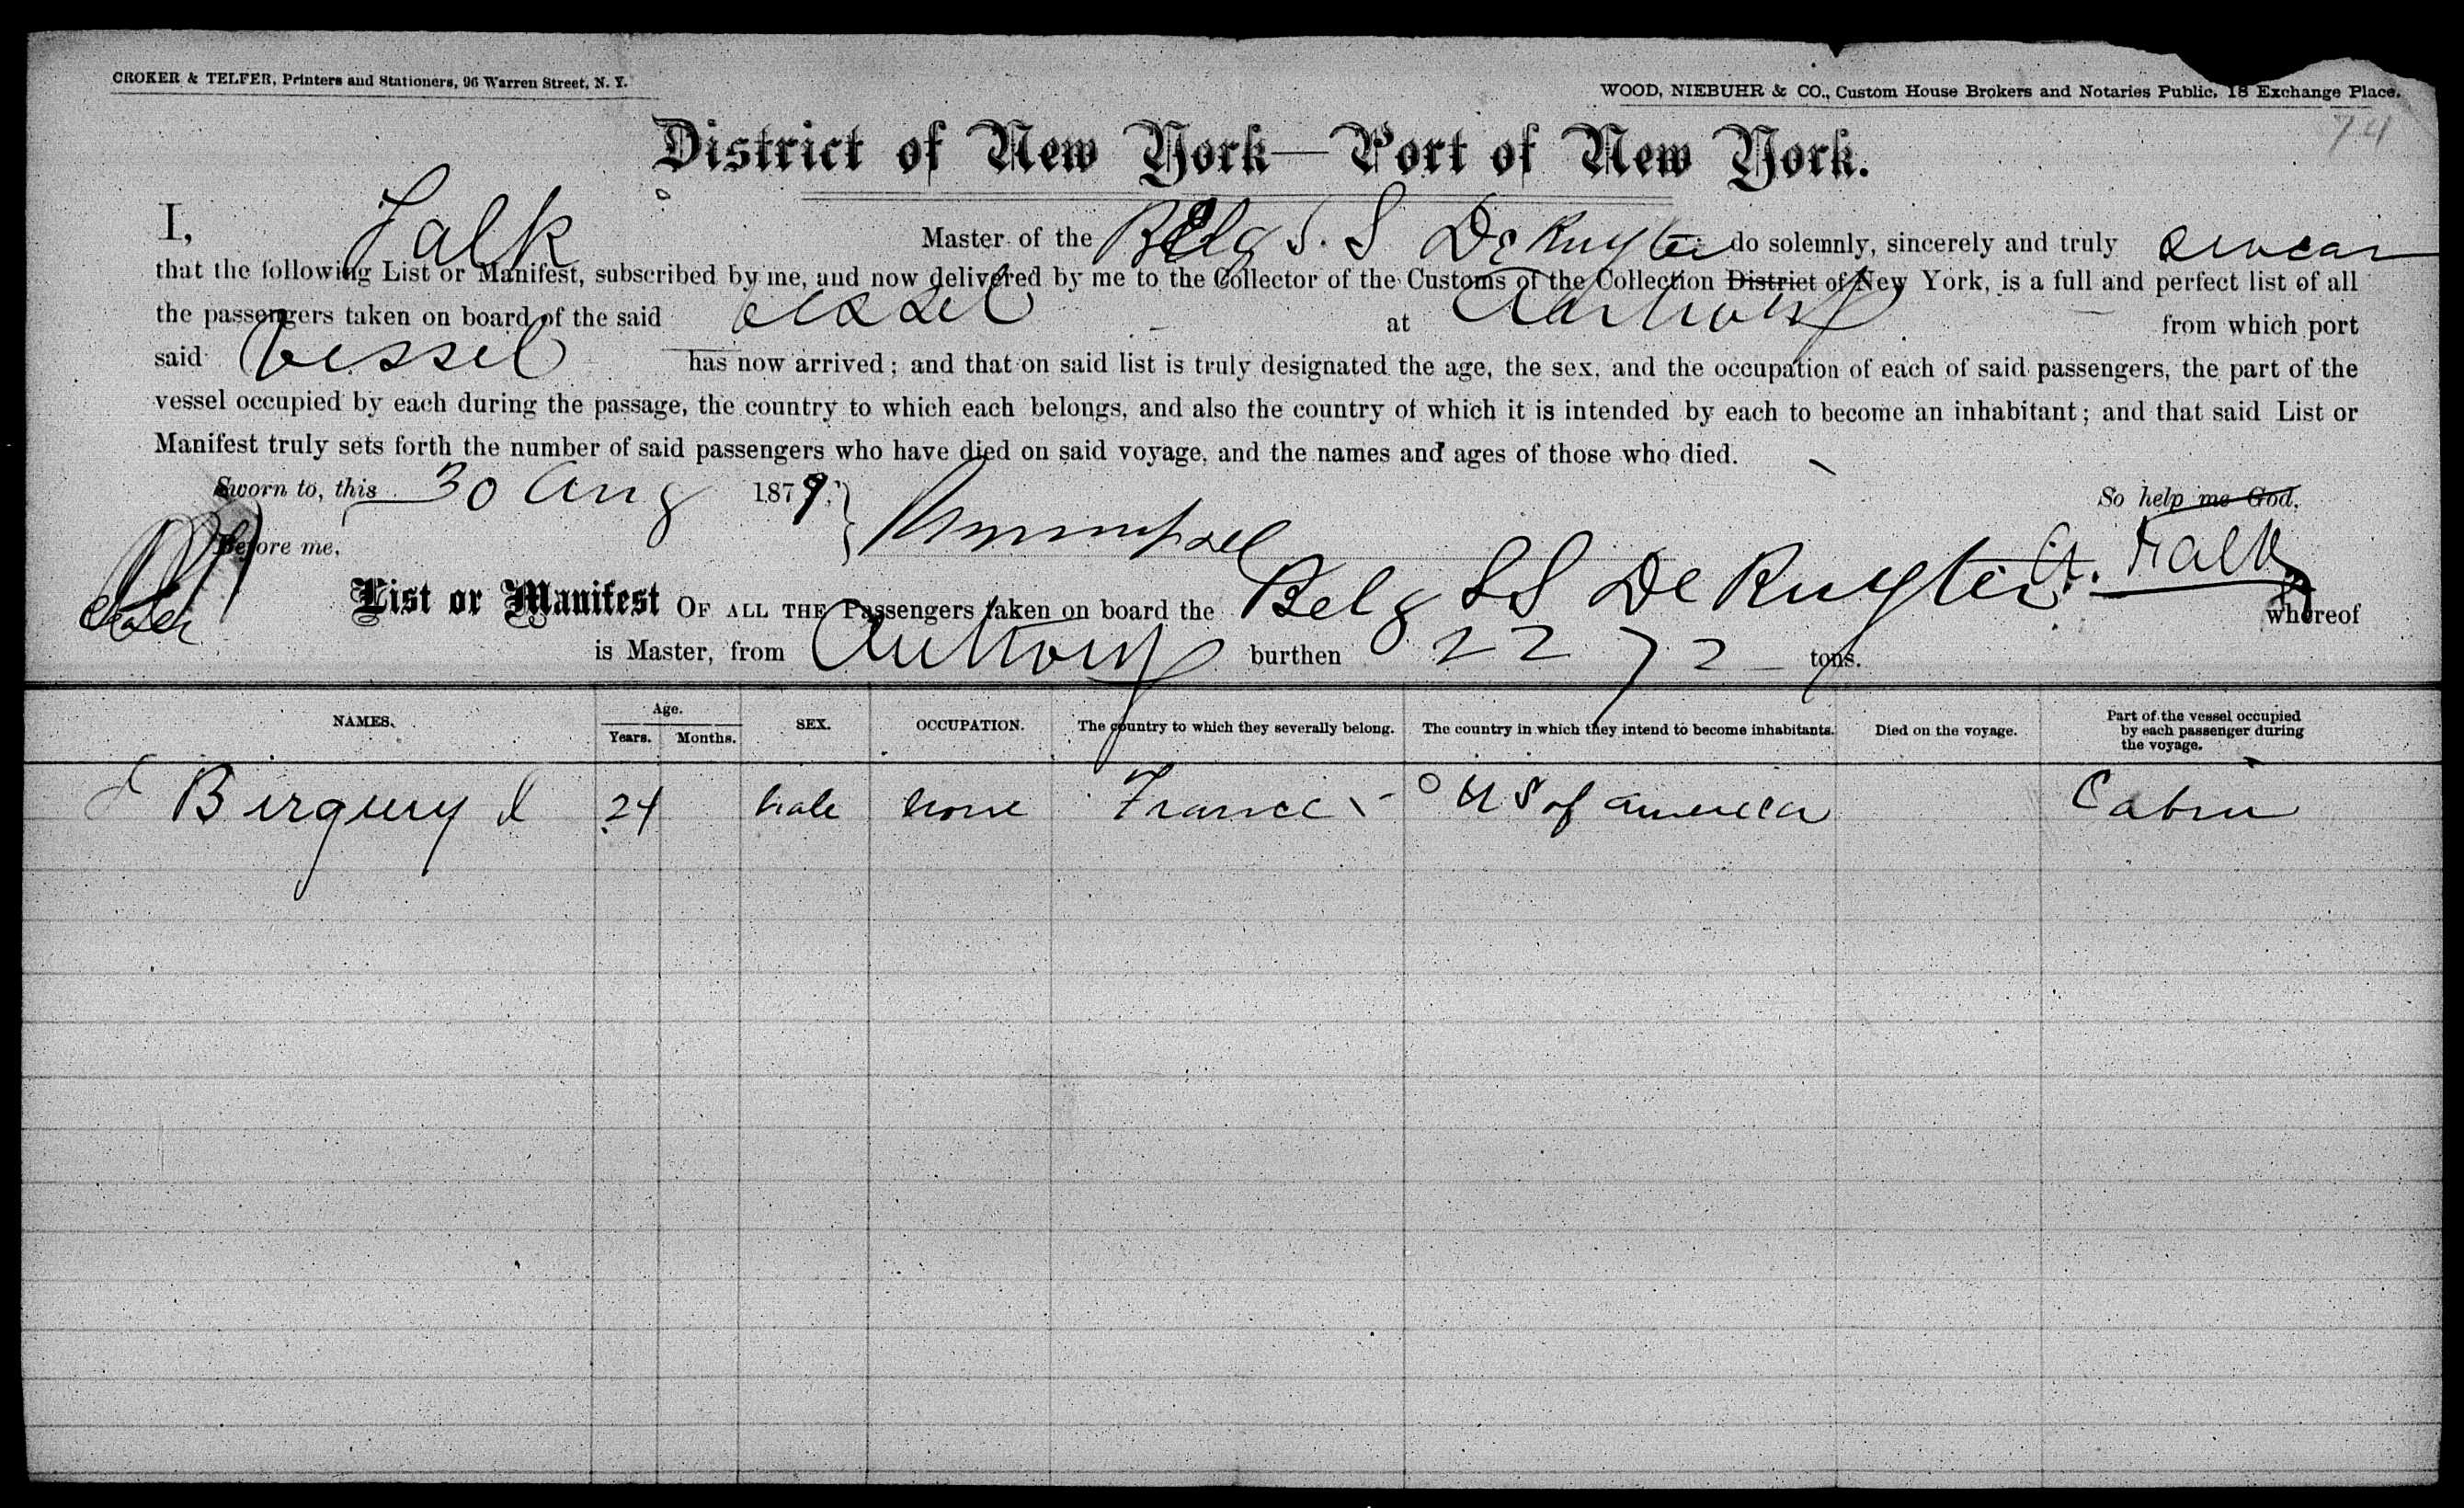 CROKER & TELFER, Printers and Stationers, 96 Warren Street, N. Y.
WOOD, NIEBUHR & CO., Custom House Brokers and Notaries Public, 18 Exchange Place.
74
District of New York—Port of New York.
I, Falk Master of the Belg S. S De Ruyter do solemnly, sincerely and truly swear
that the following List or Manifest, subscribed by me, and now delivered by me to the Collector of the Customs of the Collection District of New York, is a full and perfect list of all
the passengers taken on board of the said vessel at Antwerp from which port
said vessel has now arrived; and that on said list is truly designated the age, the sex, and the occupation of each of said passengers, the part of the
vessel occupied by each during the passage, the country to which each belongs, and also the country of which it is intended by each to become an inhabitant; and that said List or
Manifest truly sets forth the number of said passengers who have died on said voyage, and the names and ages of those who died.
Sworn to, this 30 Aug 1879. So help me God,
Before me, A. Falk
List or Manifest OF ALL THE Passengers taken on board the Belg SS De Ruyter whereof
is Master, from Antwerp burthen 2272 tons.
NAMES. Age. Years. Months. SEX. OCCUPATION. The country to which they severally belong. The country in which they intend to become inhabitants. Died on the voyage. Part of the vessel occupied by each passenger during the voyage.
24 Male none France US of america Cabin